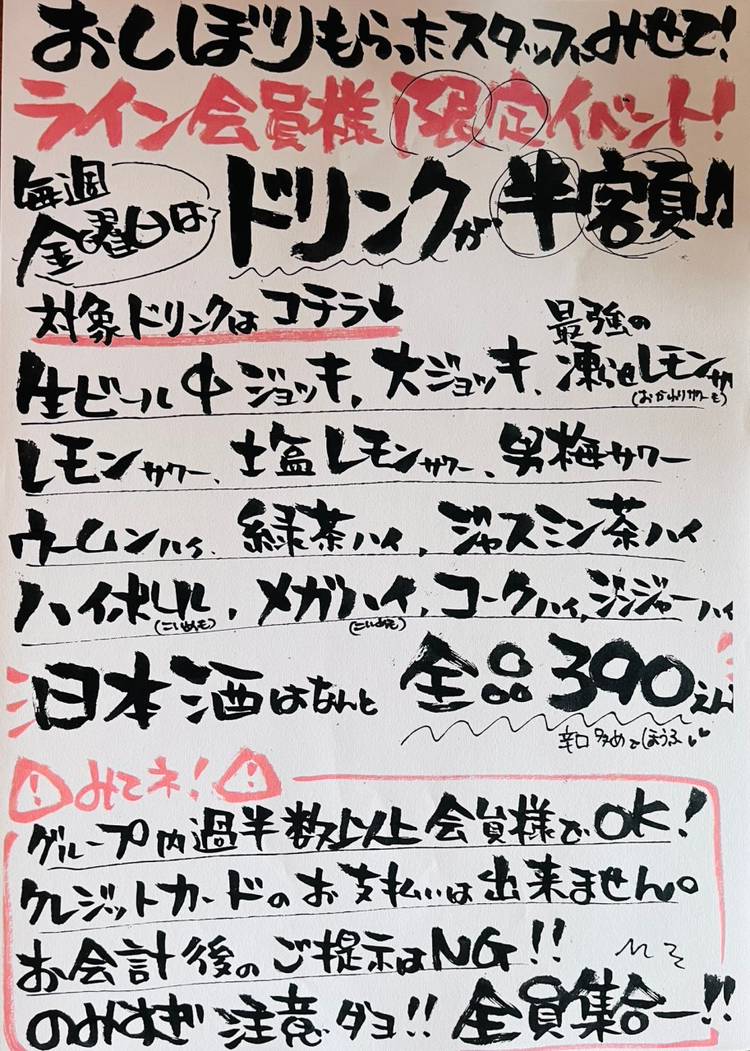 おしぼりもらったスタッフにみせて!
ライン会員様限定イベント!
毎週
金曜日は
ドリンクが半額♫
対象ドリンクはコチラ↓
生ビール中ジョッキ、大ジョッキ、最強の凍らせレモンサワー
(おかわりサワーも)
レモンサワー、塩レモンサワー、男梅サワー
ウーロンハイ、緑茶ハイ、ジャスミン茶ハイ
ハイボール(こいめも)、メガハイ(こいめも)、コークハイ、ジンジャーハイ
日本酒はなんと 全品390えん
辛口多めでほうふ♥♥
みてネ!
グループ内過半数以上会員様でOK!
クレジットカードのお支払いは出来ません。
お会計後のご提示はNG!!
のみすぎ注意ダヨ!! 全員集合ー!!